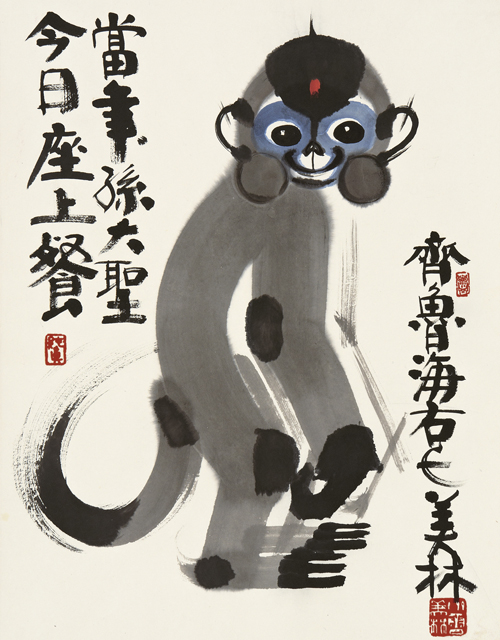 當年孫大聖
今日座上餐
齊魯海右美林